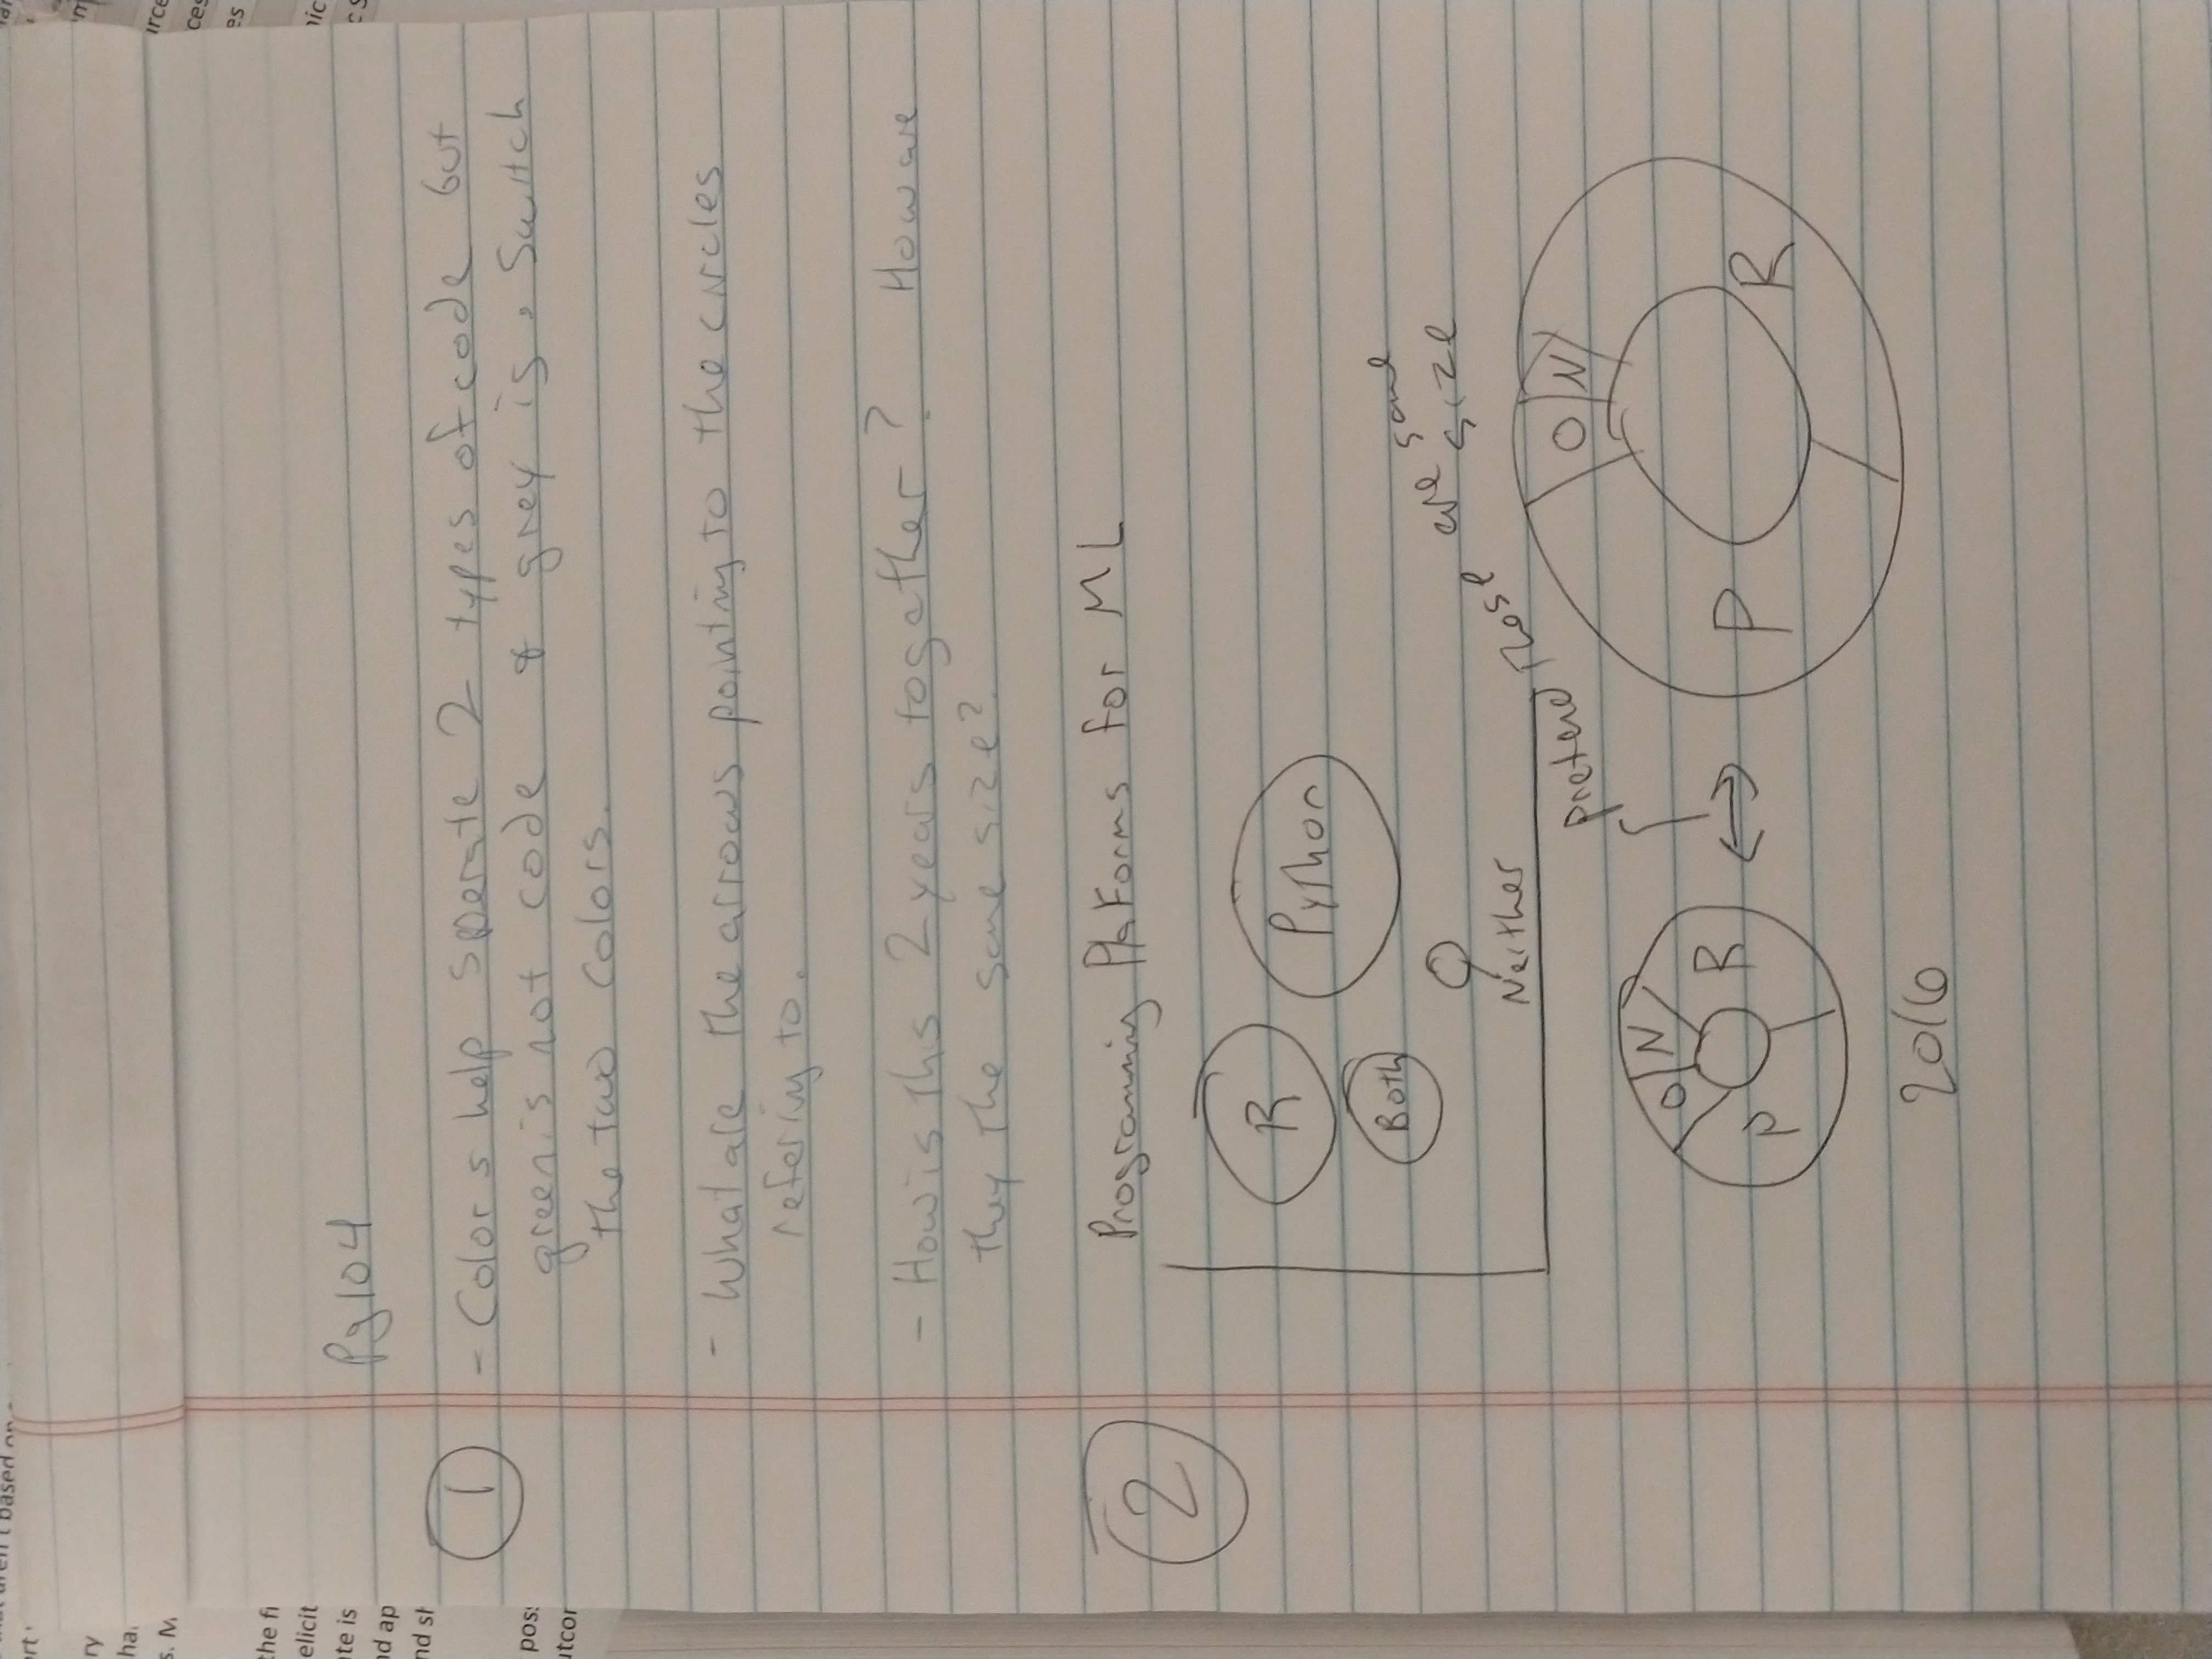 aren't based on
ort
ry
ha
s. M
the fi
elicit
te is
nd ap
nd sh
pos
utcor
urce
ces
es
nic
c S
Pg 104
1
- Colors help sperate 2 types of code but
green is not code & grey is. Switch
the two colors.
- What are the arrows pointing to the circles
refering to.
- How is this 2 years together? How are
they the same size?
2
Programming Platforms for ML
R
Python
Both
Neither
pretend those are same
size
O N
P R
O N
P R
2016